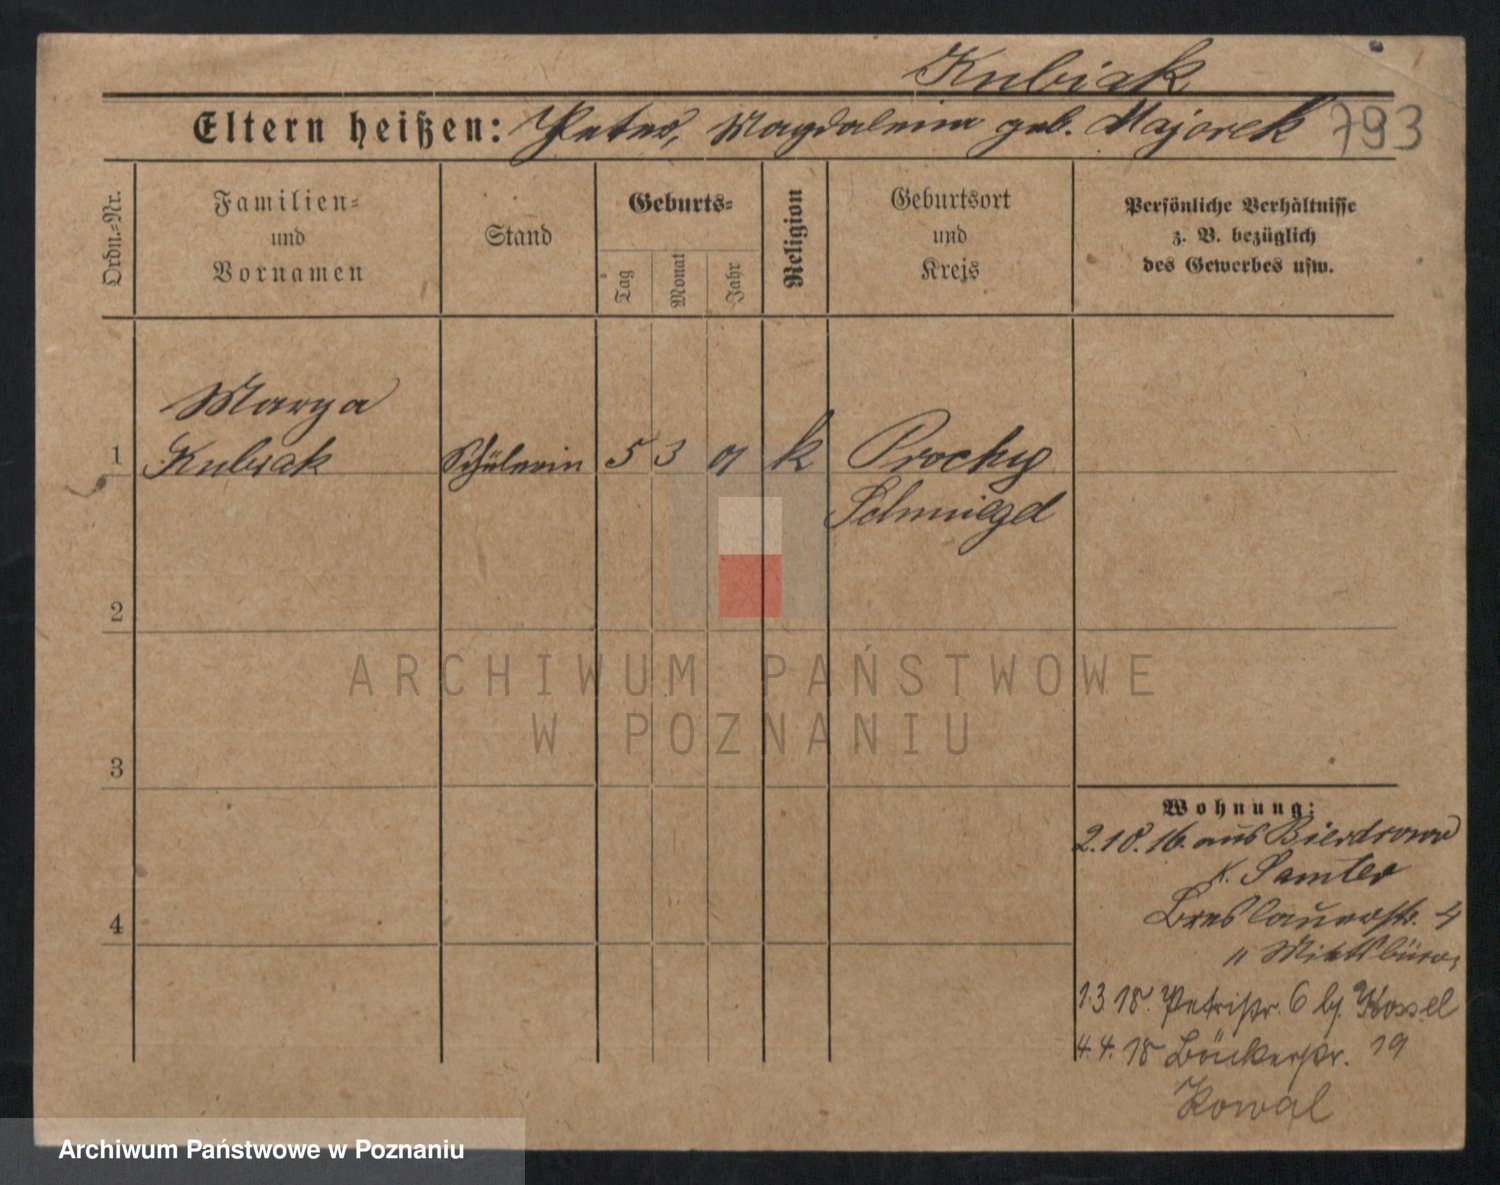 Kubiak
Eltern heißen: Peter, Magdalena geb. Majorek 793
Ordn.-Nr.
Familien-
und
Vornamen
Stand
Geburts-
Tag
Monat
Jahr
Religion
Geburtsort
und
Kreis
Persönliche Verhältnisse
z. B. bezüglich
des Gewerbes usw.
Marya
1 Kubiak Schülerin 5 3 01 k Prochy
Schmiegel
2
ARCHIWUM PAŃSTWOWE
W POZNANIU
3
Wohnung:
2.10.16. aus
K. Samter
Breslauerstr. 4
4
" Mietsbüro
1.3.18. Petristr. 6 b/.
4.4.18 Bäckerstr. 19
Kowal
Archiwum Państwowe w Poznaniu